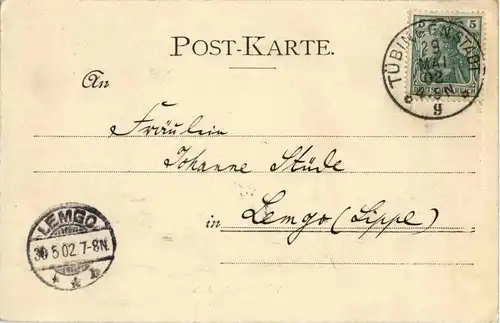 POST-KARTE.
TÜBINGEN STADT
29
MAI
02
g
5
An
Fräulein
Johanne Stüde
in Lemgo (Lippe)
LEMGO
30 5 02 7-8N.
* * b